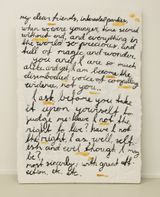 my dear friends, interested parties
when we were younger, time seemed
without end, and everything in
the world so precious and
full of magic and wonder.
you and I are so much
alike, and yet I am become the
disembodied voice of
evidence, not you..
I ask before you take
it upon yourself to
judge me: have I not the
right to live? have I not
the right, as well, self-
ish and evil though I may
be?
most sincerely, with great aff-
ection, etc. etc.